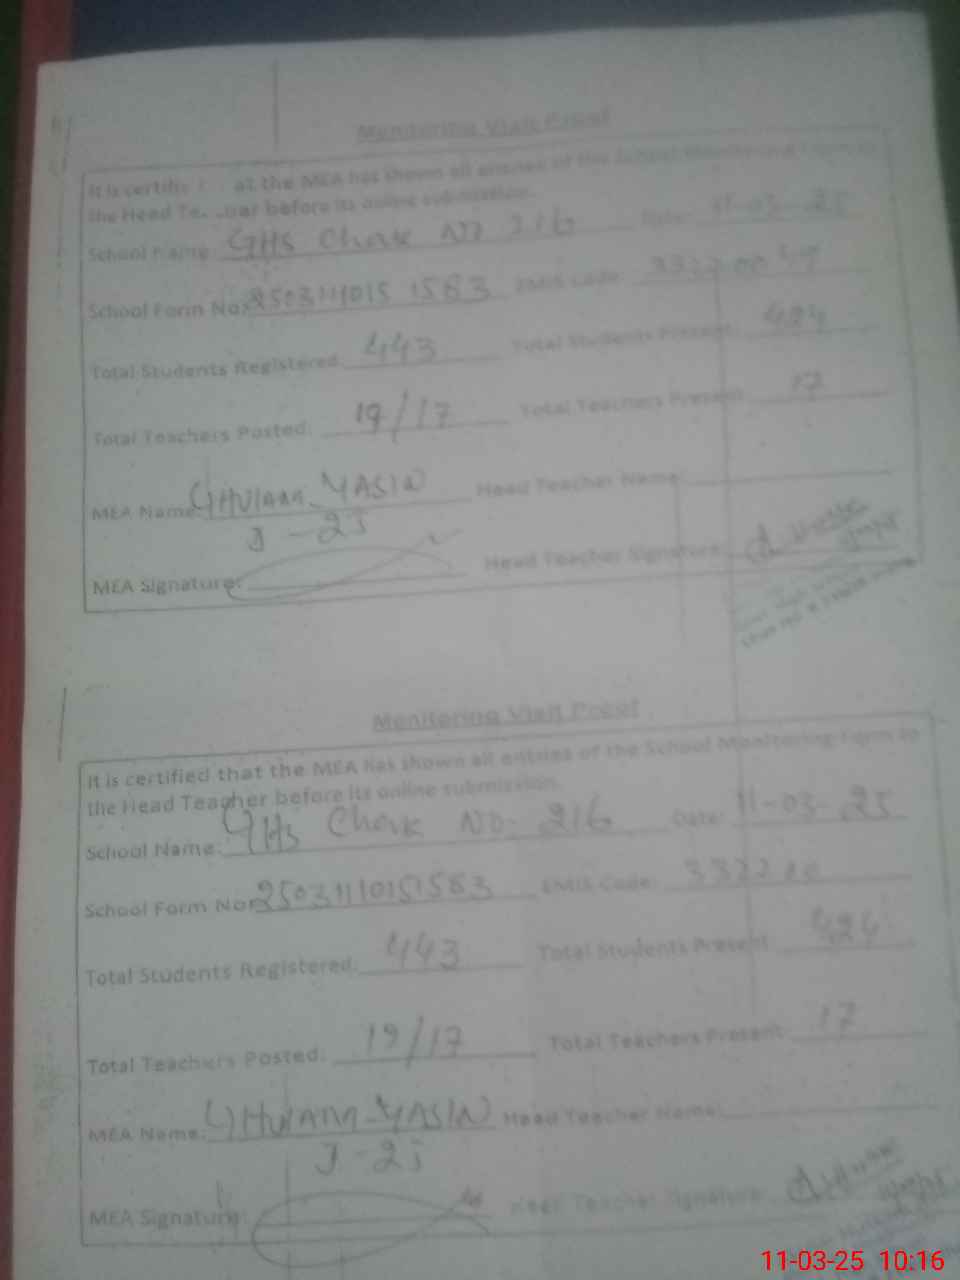 Monitoring Visit Proof
It is certifi at the MEA has shown all entries of the School Monitoring Form to
the Head Te..her before its online submission.
School Name: GHS Chak NO 216 Date: 11-03-25
School Form No: 25031110151583 EMIS Code:
Total Students Registered: 443 Total Students Present: 424
Total Teachers Posted: 19/17 Total Teachers Present: 17
MEA Name: GHULAM YASIN Head Teacher Name:
MEA Signature: Head Teacher Signature:
Monitoring Visit Proof
It is certified that the MEA has shown all entries of the School Monitoring Form to
the Head Teacher before its online submission.
School Name: GHS Chak NO. 216 Date: 11-03-25
School Form No: 25031110151583 EMIS Code:
Total Students Registered: 443 Total Students Present: 424
Total Teachers Posted: 19/17 Total Teachers Present: 17
MEA Name: GHULAM YASIN Head Teacher Name:
MEA Signature: Head Teacher Signature:
11-03-25 10:16